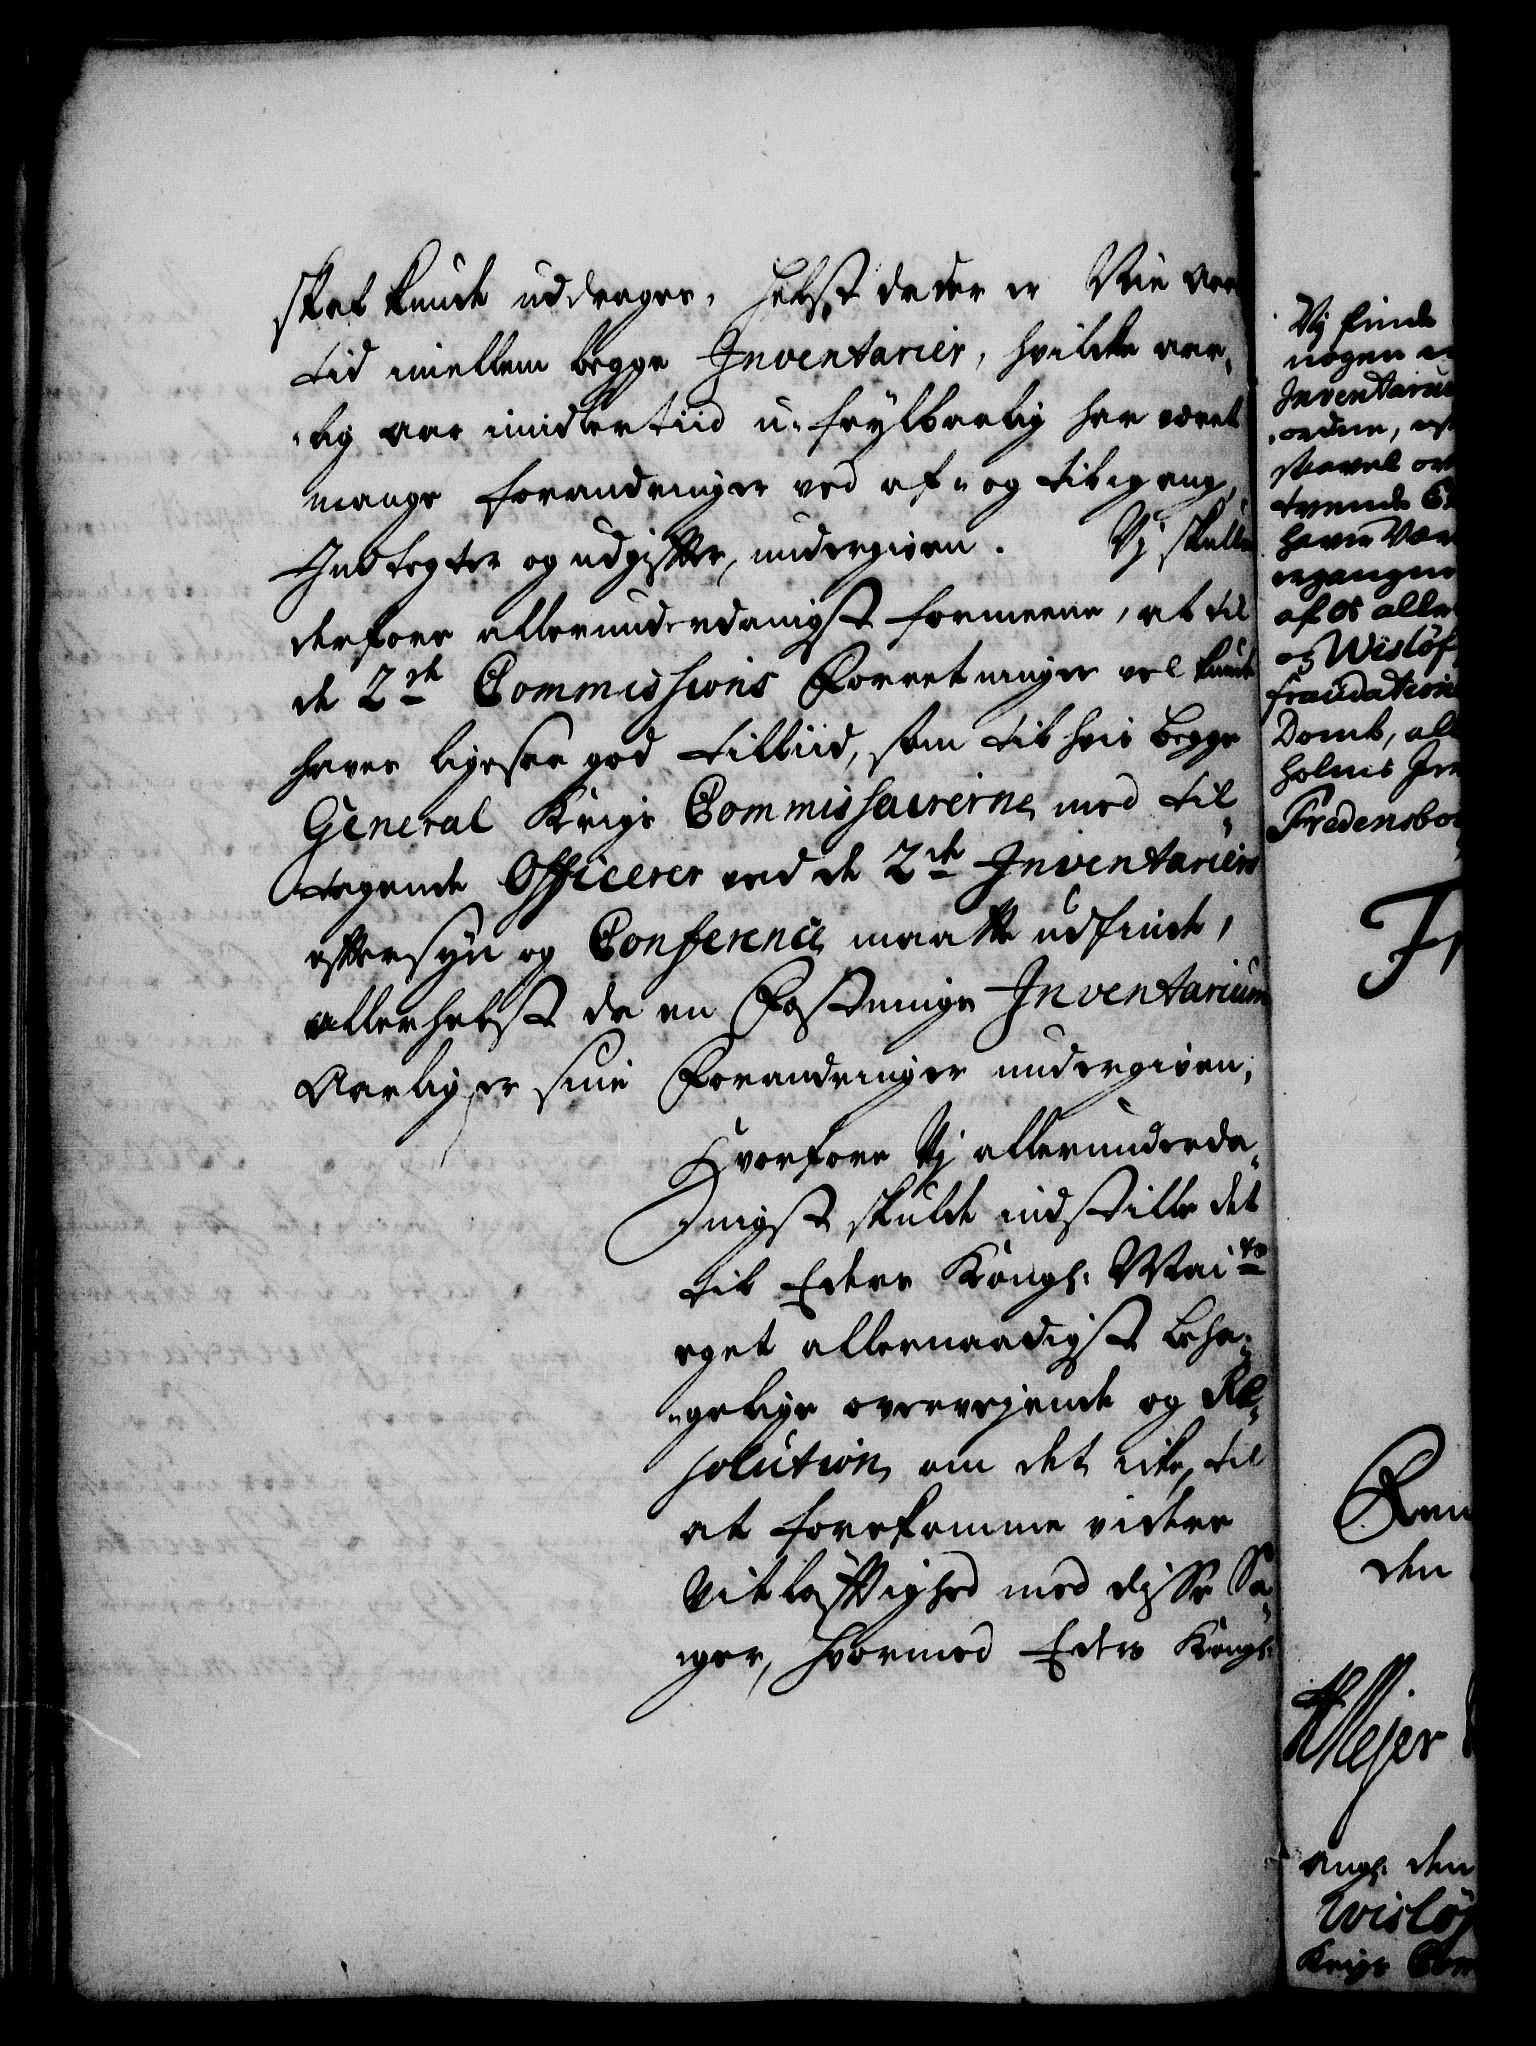 skal kunde uddrages, helst da der er Nie aars
tid imellem begge Inventarier, hvilke aar„
„lig aar imidlertiid u-feylbarlig har været
mange forandringer ved af- og tilgang,
Indtegter og udgifter, undergiven. Vj skulle
derfore allerunderdanigst formeene, at til
de 2de Commissions Forretninger vel kunde
haves ligesaa god tilliid, som til hvis begge
General Krigs Commissairerne med til„
tagende Officerer ved de 2de Inventariers
eftersyn og Conference maatte udfinde,
allerhelst da en Fæstnings Inventarium
Aarlig er sine Forandringer undergiven,
Hvorfore Vj allerunderda„
nigst skulde indstille det
til Eders Kongl: Maits
eget allernaadigst beha„
„gelige overvejende og Re„
solution, om det icke, til
at forekomme videre
Vitløftighed med disse Sa„
ger, hvormed Eders Kongl:
Vj finde
nogen
Inventarium
ordne,
skavel
tvende
haver Vær
egangne
af os aller
og Wisløf
fraudation
Domb, all
holms
Fredensbor
F
Ren
den
Mejer
angl: den
Wisløf
Krigs Com